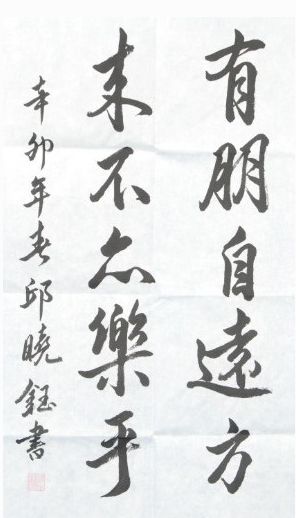 有朋自遠方
来不亦樂乎
辛卯年春邱曉鈺書